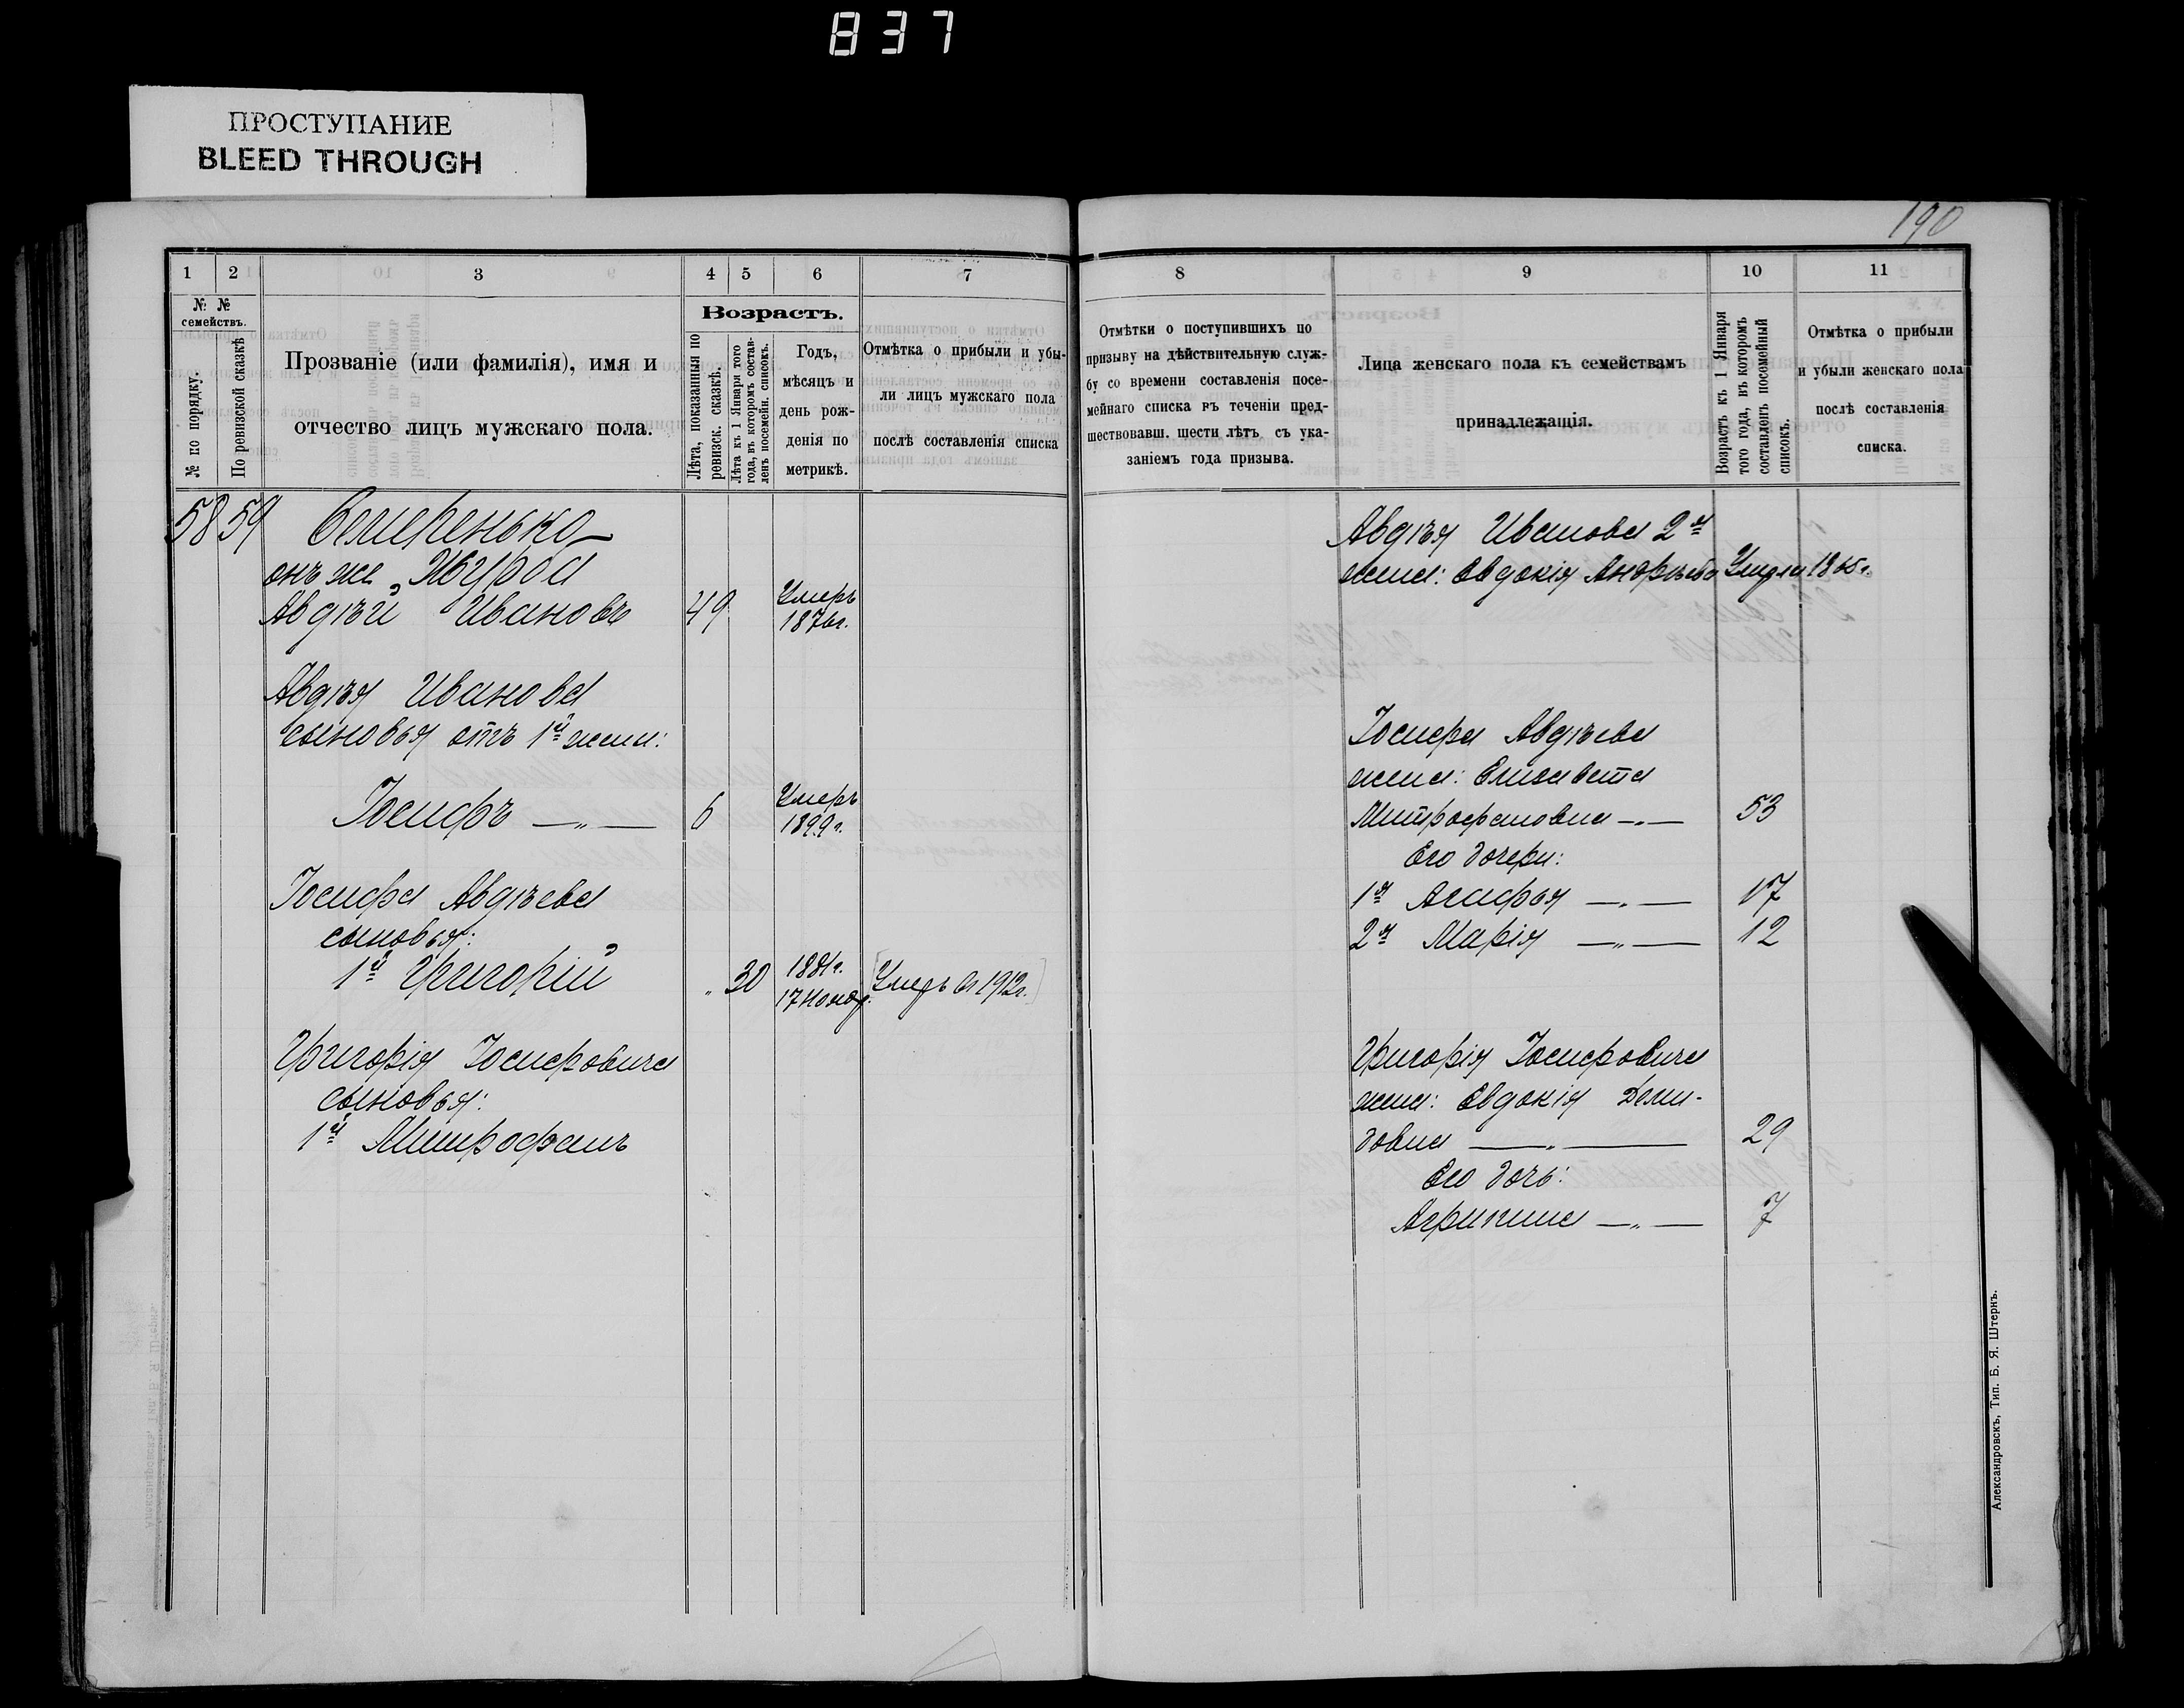 837
ПРОСТУПАНИЕ
BLEED THROUGH
190
1 2 3 4 5 6 7
№ № семействъ.
№ по порядку.
По ревизской сказкѣ
Прозваніе (или фамилія), имя и
отчество лицъ мужскаго пола.
Возрастъ.
Лѣта, показанныя по
ревизск. сказкѣ.
Лѣта къ 1 Января того
года, въ которомъ состав-
ленъ посемейн. списокъ.
Годъ,
мѣсяцъ и
день рож-
денія по
метрикѣ.
Отмѣтка о прибыли и убы-
ли лицъ мужскаго пола
послѣ составленія списка
58 59 Семеренько
онъ же „Жура
Авдѣй Ивановъ 49 Умеръ
1876г.
Авдѣя Иванова
сыновья отъ 1й жены:
Іосифъ —„— 6 Умеръ
1899г.
Іосифа Авдѣева
сыновья:
1й Григорій „ 30 1881г.
17 Нояб. Умеръ въ 1912г.
Григорія Іосифовича
сыновья:
1й Митрофанъ
8 9 10 11
Отмѣтки о поступившихъ по
призыву на дѣйствительную служ-
бу со времени составленія посе-
мейнаго списка въ теченіи пред-
шествовавш. шести лѣтъ съ ука-
заніемъ года призыва.
Лица женскаго пола къ семействамъ
принадлежащія.
Возрастъ къ 1 Января
того года, въ которомъ
составленъ посемейный
списокъ.
Отмѣтка о прибыли
и убыли женскаго пола
послѣ составленія
списка.
Авдѣя Иванова 2я
жена: Евдокія Андрѣева Умерла 1865г.
Іосифа Авдѣева
жена: Елизавета
Митрофановна —„— 53
Его дочери:
1я Агафья —„— 17
2я Марія —„— 12
Григорія Іосифовича
жена: Евдокія Деми-
довна —„— 29
Его дочь:
Агрипина —„— 7
Александровскъ, Тип. Б. Я. Штернъ.